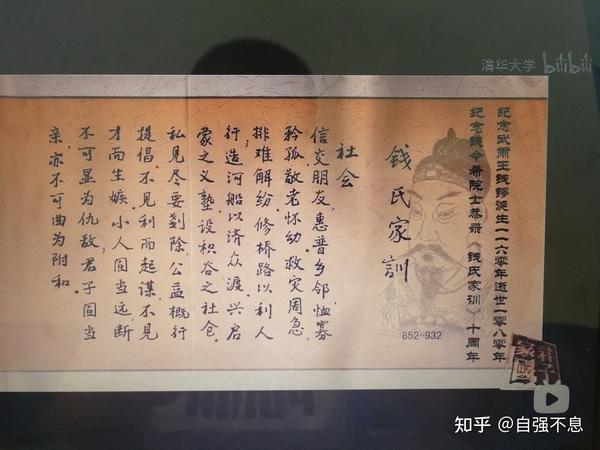 清华大学 bilibili
纪念武肃王钱镠诞生一一六零年逝世一零八零年
纪念钱令希院士恭录《钱氏家训》十周年
钱氏家訓
852-932
社会
信交朋友，惠普乡邻，恤寡
矜孤，敬老怀幼，救灾周急，
排难解纷，修桥路以利人
行，造河船以济众渡，兴启
蒙之义塾，设积谷之社仓，
私见尽要剗除，公益概行
提倡，不见利而起谋，不见
才而生嫉，小人固当远，断
不可显为仇敌，君子固当
亲，亦不可曲为附和。
知乎 @自强不息